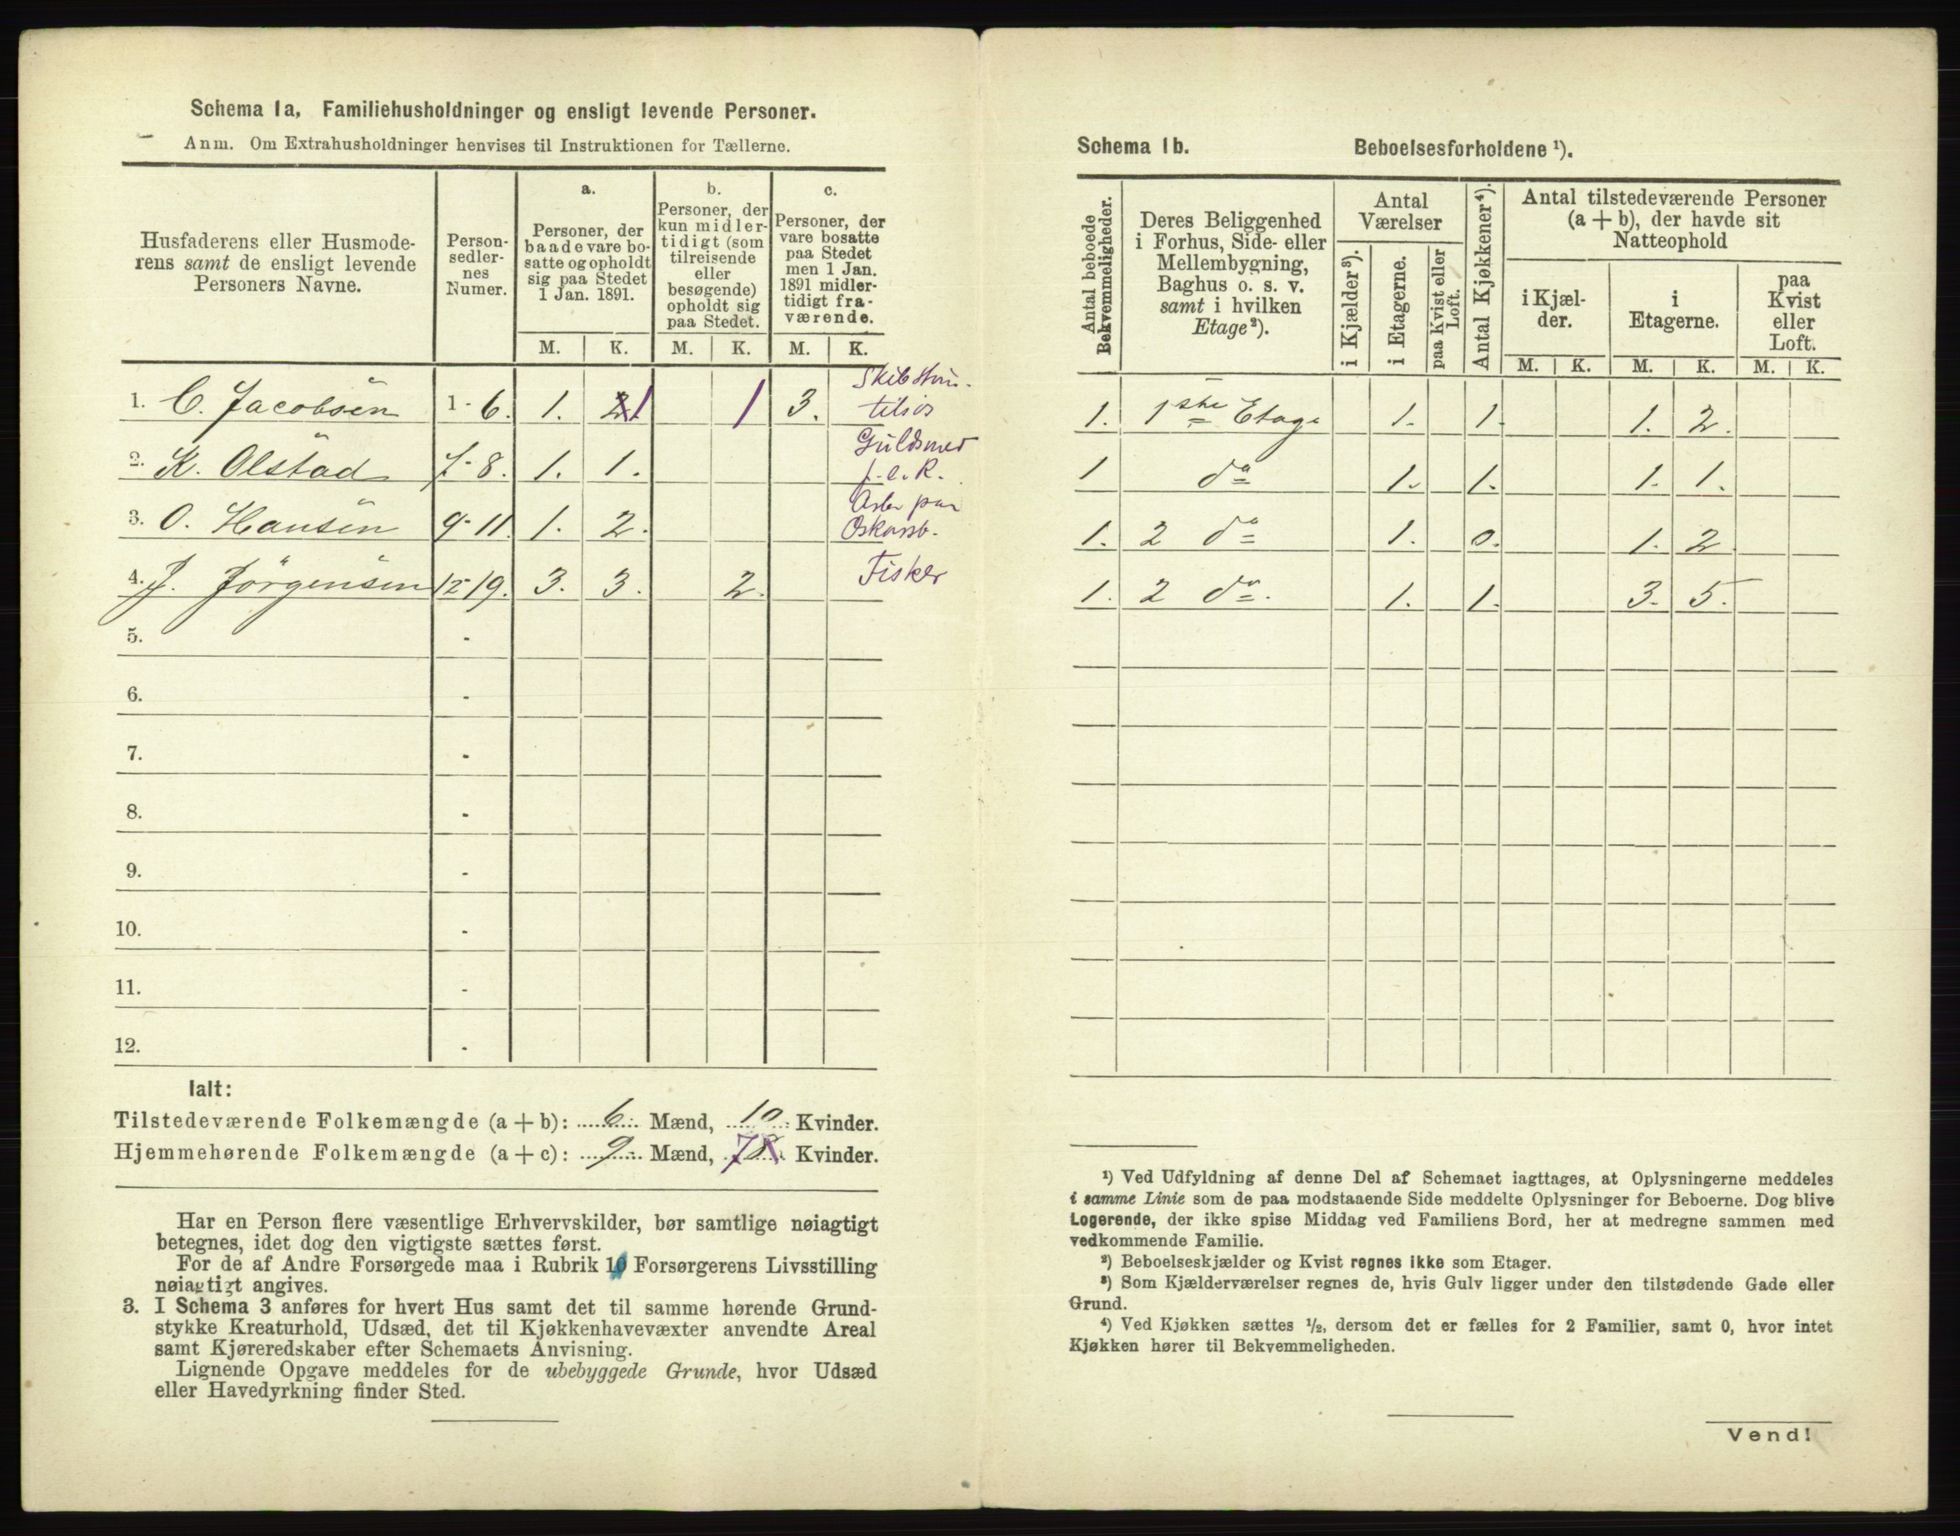 Schema 1a. Familiehusholdninger og ensligt levende Personer.
Anm. Om Extrahusholdninger henvises til Instruktionen for Tællerne.
Husfaderens eller Husmode-
rens samt de ensligt levende
Personers Navne.
Person-
sedler-
nes
Numer.
a.
Personer, der
baade vare bo-
satte og opholdt
sig paa Stedet
1 Jan. 1891.
b.
Personer, der
kun midler-
tidigt (som
tilreisende
eller
besøgende)
opholdt sig
paa Stedet.
c.
Personer, der
vare bosatte
paa Stedet
men 1 Jan.
1891 midler-
tidigt fra-
værende.
M. K. M. K. M. K.
1. C. Jacobsen 1-6. 1. 2 1 1 3.
tilsjøs
2. K. Olstad 7-8. 1. 1. Guldsmed
f. e. R.
3. O. Hansen 9-11. 1. 2. Arb paa
Oskarsb.
4. J. Jörgensen 12-19. 3. 3. 2. Fisker
5. -
6. -
7. -
8. -
9. -
10. -
11. -
12. -
Ialt:
Tilstedeværende Folkemængde (a + b): 6 Mænd, 10 Kvinder.
Hjemmehørende Folkemængde (a + c): 9 Mænd, 7 8 Kvinder.
Har en Person flere væsentlige Erhvervskilder, bør samtlige nøiagtigt
betegnes, idet dog den vigtigste sættes først.
For de af Andre Forsørgede maa i Rubrik 10 Forsørgerens Livsstilling
nøiagtigt angives.
3. I Schema 3 anføres for hvert Hus samt det til samme hørende Grund-
stykke Kreaturhold, Udsæd, det til Kjøkkenhavevæxter anvendte Areal
samt Kjøreredskaber efter Schemaets Anvisning.
Lignende Opgave meddeles for de ubebyggede Grunde, hvor Udsæd
eller Havedyrkning finder Sted.
Schema 1b. Beboelsesforholdene ¹).
Antal beboede
Bekvemmeligheder.
Deres Beliggenhed
i Forhus, Side- eller
Mellembygning,
Baghus o. s. v.
samt i hvilken
Etage²).
Antal
Værelser
i Kjælder³).
i Etagerne.
paa Kvist eller
Loft.
Antal Kjøkkener⁴).
Antal tilstedeværende Personer
(a + b), der havde sit
Natteophold
i Kjæl-
der.
i
Etagerne.
paa
Kvist
eller
Loft.
M. K. M. K. M. K.
1. 1ste Etage 1. 1. 1. 2.
1 do 1. 1. 1. 1.
1. 2 do 1. 0. 1. 2
1. 2 do. 1. 1. 3. 5.
¹) Ved Udfyldning af denne Del af Schemaet iagttages, at Oplysningerne meddeles
i samme Linie som de paa modstaaende Side meddelte Oplysninger for Beboerne. Dog blive
Logerende, der ikke spise Middag ved Familiens Bord, her at medregne sammen med
vedkommende Familie.
²) Beboelseskjælder og Kvist regnes ikke som Etager.
³) Som Kjælderværelser regnes de, hvis Gulv ligger under den tilstødende Gade eller
Grund.
⁴) Ved Kjøkken sættes ½, dersom det er fælles for 2 Familier, samt 0, hvor intet
Kjøkken hører til Bekvemmeligheden.
Vend!